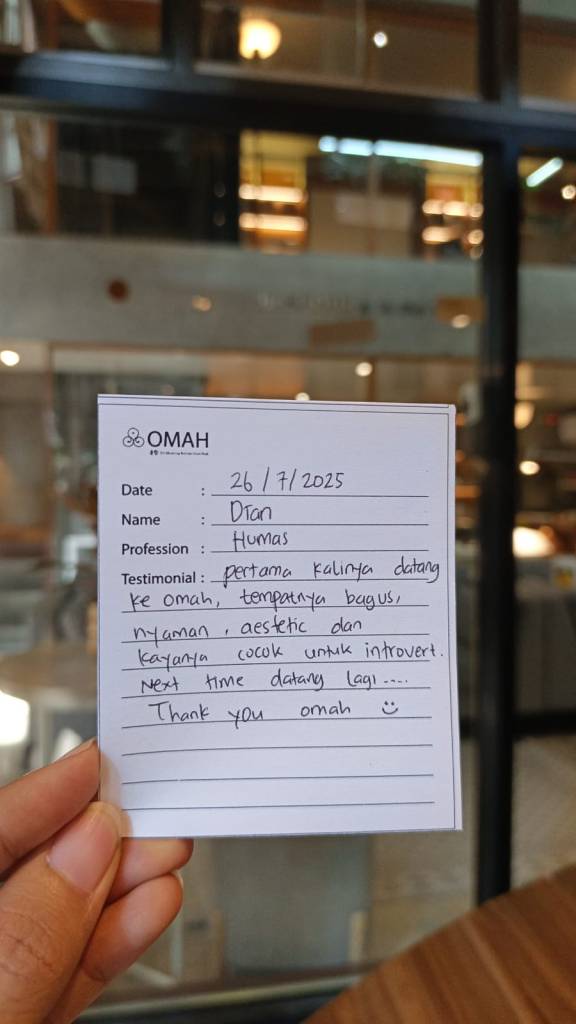 OMAH
Date : 26/7/2025
Name : Dian
Profession : Humas
Testimonial : pertama kalinya datang
ke omah, tempatnya bagus,
nyaman, aestetic dan
kayanya cocok untuk introvert.
Next time datang lagi....
Thank you omah